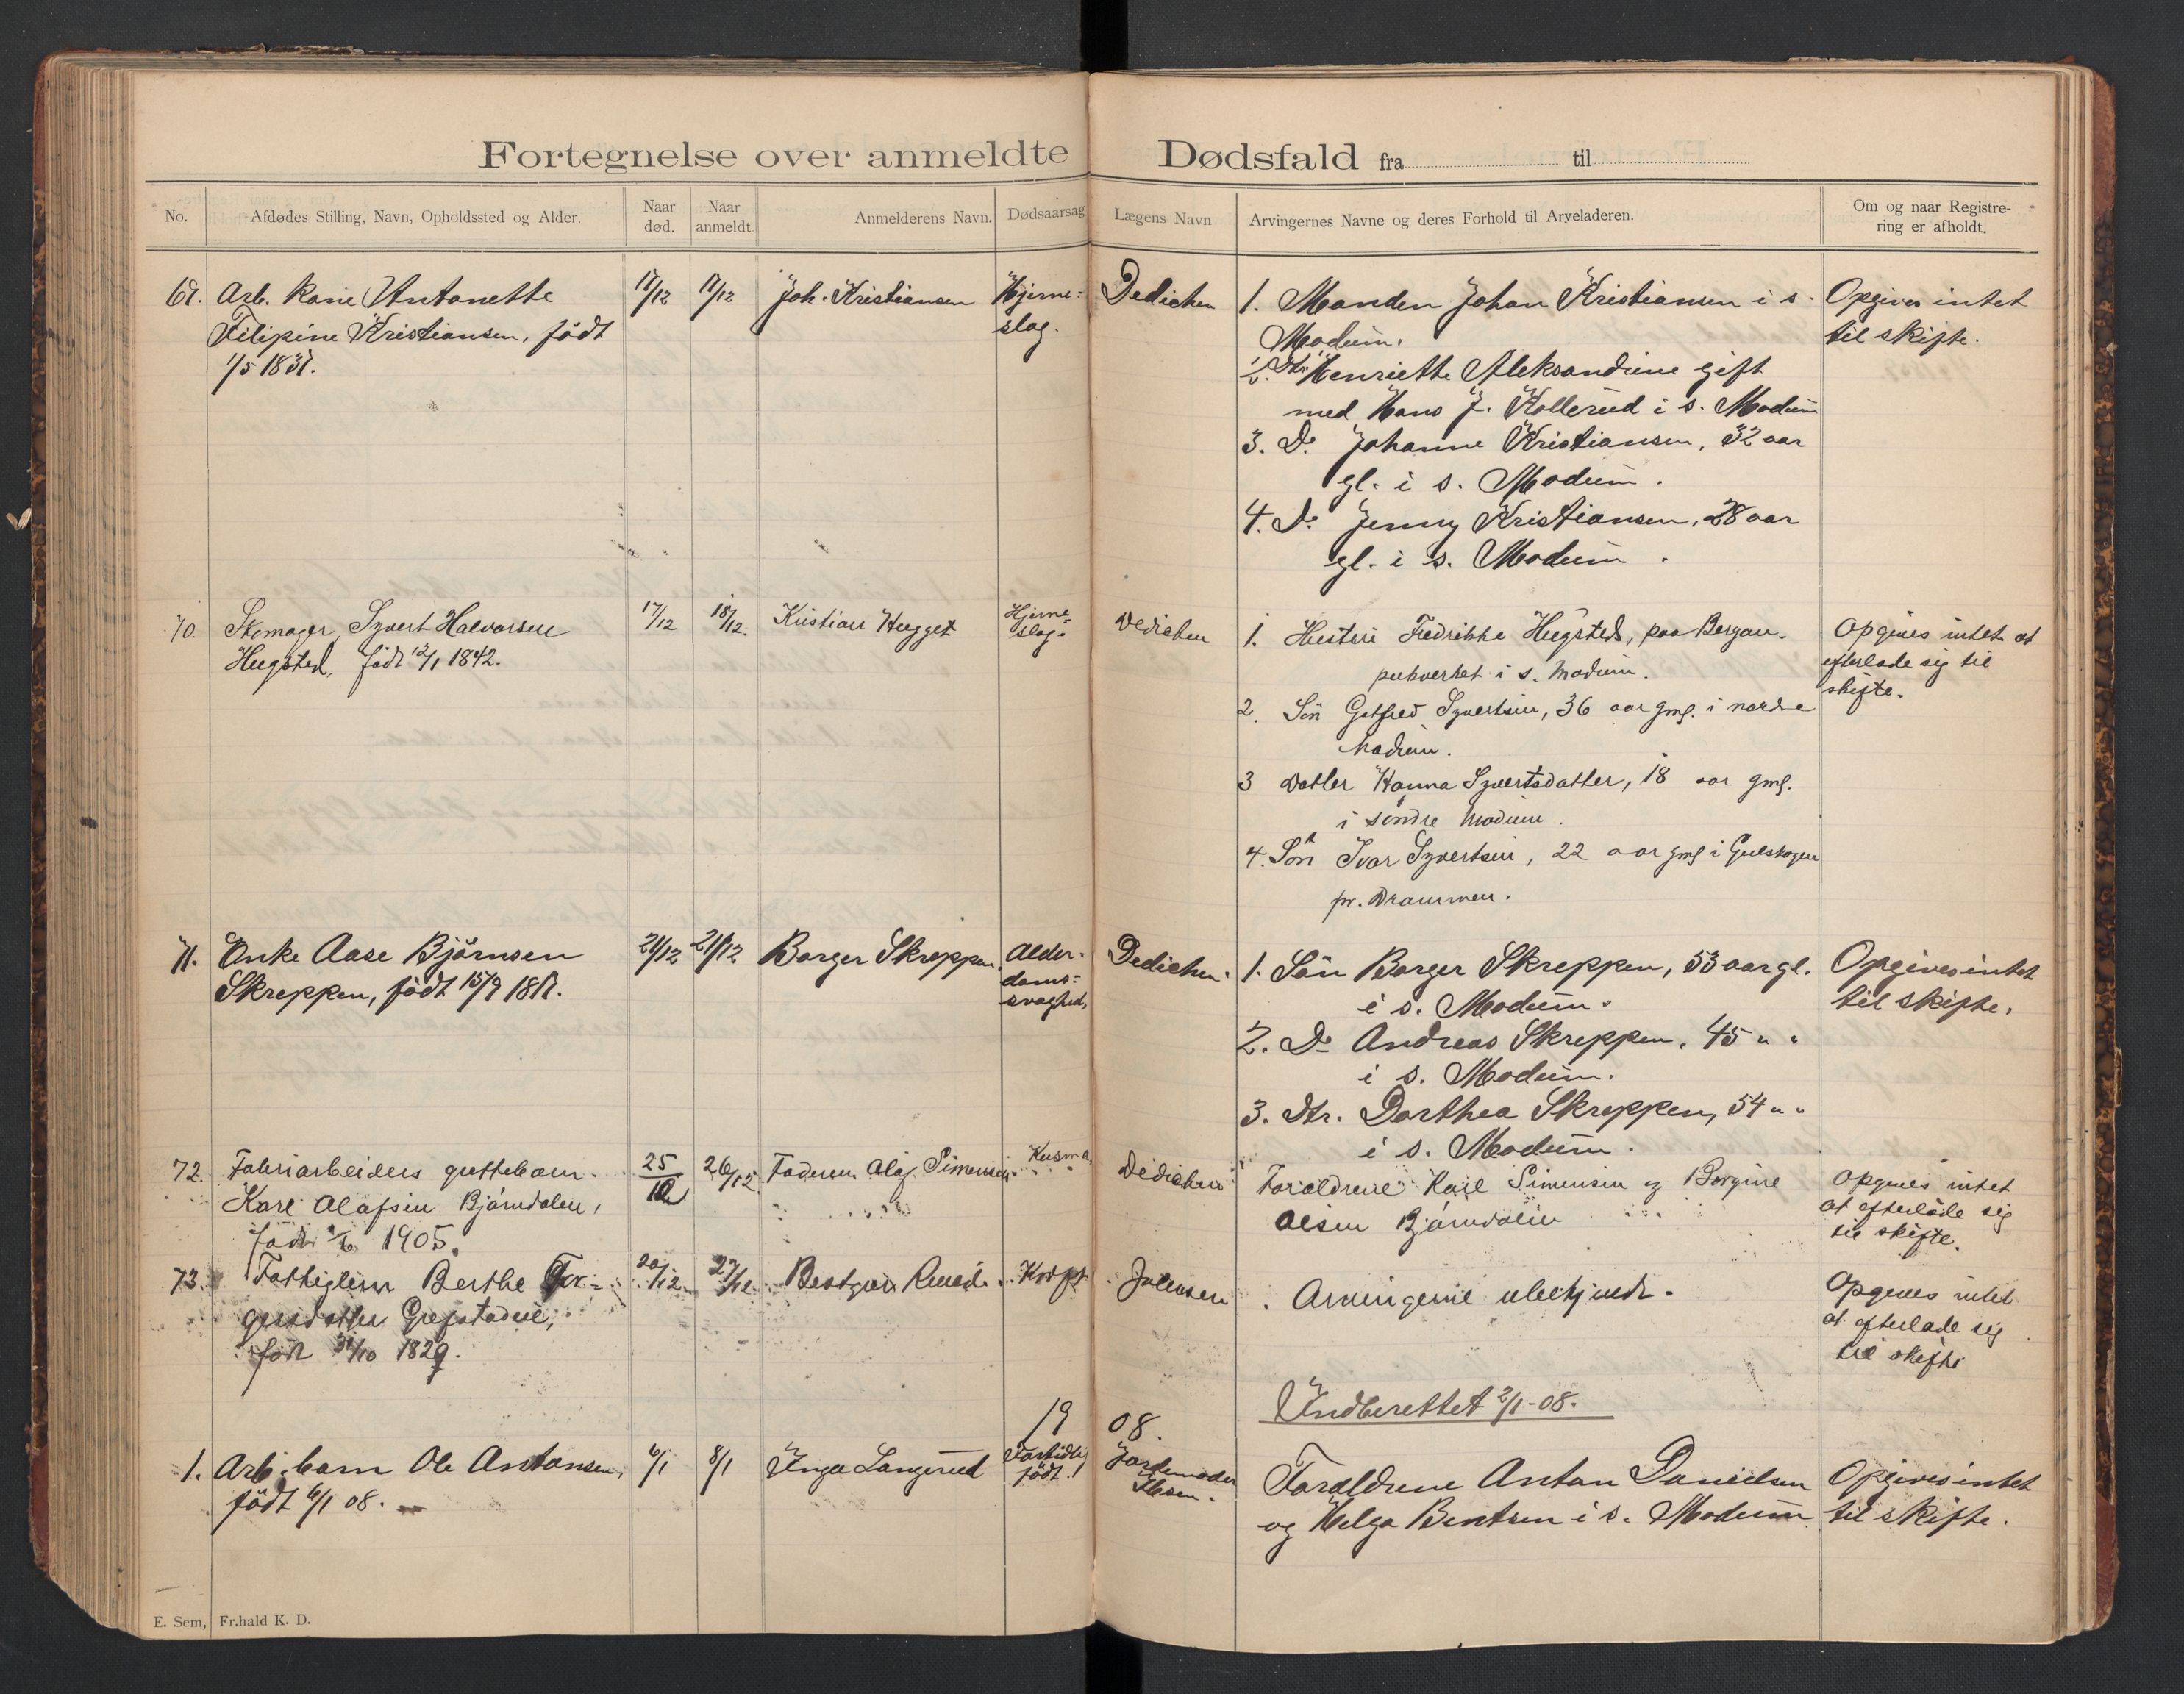 Fortegnelse over anmeldte Dødsfald fra til
No. Afdødes Stilling, Navn, Opholdssted og Alder. Naar død. Naar anmeldt. Anmelderens Navn. Dødsaarsag Lægens Navn Arvingernes Navne og deres Forhold til Arveladeren. Om og naar Registrering er afholdt.
69. Arb. Kone Antonette
Filipine Kristiansen, född
1/5 1837.
17/12 17/12 Joh. Kristiansen Hjerne-
slag.
Dedichen
1. Manden Johan Kristiansen i s.
Modum.
2. Dtr. Henriette Aleksandrine gift
med Hans J. Kollerud i s. Modum
3. Do Johanne Kristiansen, 32 aar
gl. i s. Modum.
4. Do Jenny Kristiansen, 28 aar
gl. i s. Modum.
Opgives intet
til skifte.
70. Skomager Syvert Halvorsen
Hugsted, född 12/1 1842.
17/12 18/12. Kristian Hugget Hjerne-
slag.
Dedichen
1. Hustru Fredrikke Hugsted, paa Bergan-
i s. Modum.
2. Sön Gotfred Syvertsen, 36 aar gml. i nordre
Modum.
3 Datter Hanna Syvertsdatter, 18 aar gml.
i söndre Modum.
4. Sön Ivar Syvertsen, 22 aar gml i Gulskogen
pr. Drammen.
Opgives intet at
efterlade sig til
skifte.
71. Enke Aase Björnsen
Skreppen, född 15/9 1817.
21/12 21/12 Borger Skreppen. Alder-
doms-
svaghed.
Dedichen.
1. Sön Borger Skreppen, 53 aar gl.
i s. Modum.
2. Do Andreas Skreppen, 45 " "
i s. Modum.
3. Dtr. Dorthea Skreppen, 54 " "
i s. Modum.
Opgives intet
til skifte.
72. Fabrikarbeiders guttebarn
Karl Olafsen Björndalen,
född 1905.
25/12 26/12 Faderen Olaf Simensen
Dedichen
Forældrene Karl Simensen og Borgine
Olsen Björndalen
Opgives intet
at efterlade sig
til skifte.
73. Fattiglem Berthe Tor-
gersdatter Grefstadeie,
född 31/10 1829.
20/12 27/12 Bestyrer Ruud.
Arvingerne ubekjendt.
Opgives intet
at efterlade sig
til skifte
Indberettet 2/1-08.
1908.
1. Arb. barn Ole Antonsen,
född 6/1 08.
6/1 8/1 Inga Langerud Fortidlig
född.
Jordemoder
Ilsen.
Forældrene Anton Danielsen
og Helga Bentsen i s. Modum
Opgives intet
til skifte.
E. Sem, Fr.hald K. D.